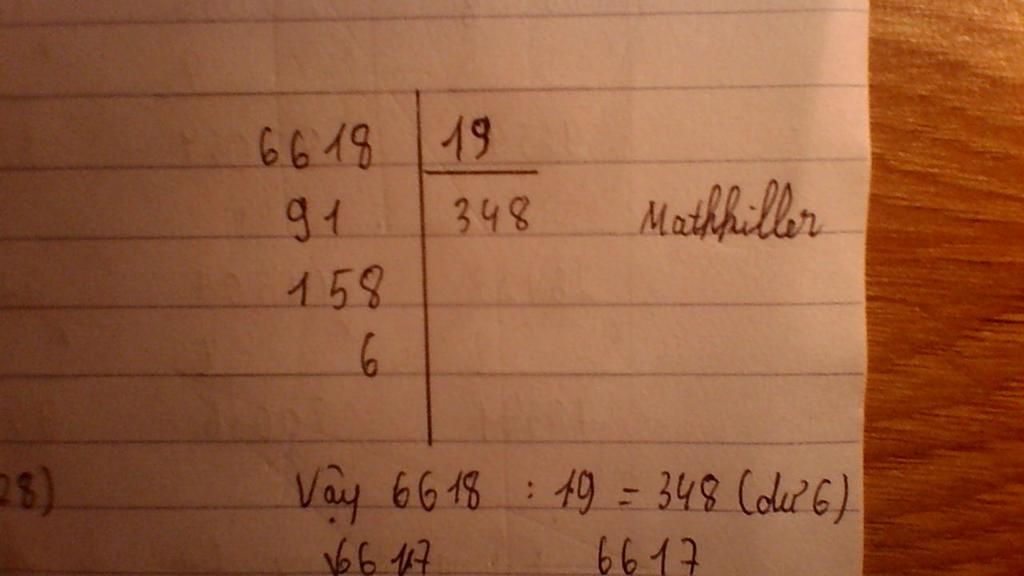 6618 19
91 348 Mathkiller
158
6
28) Vậy 6618 : 19 = 348 (dư 6)
6617 6617